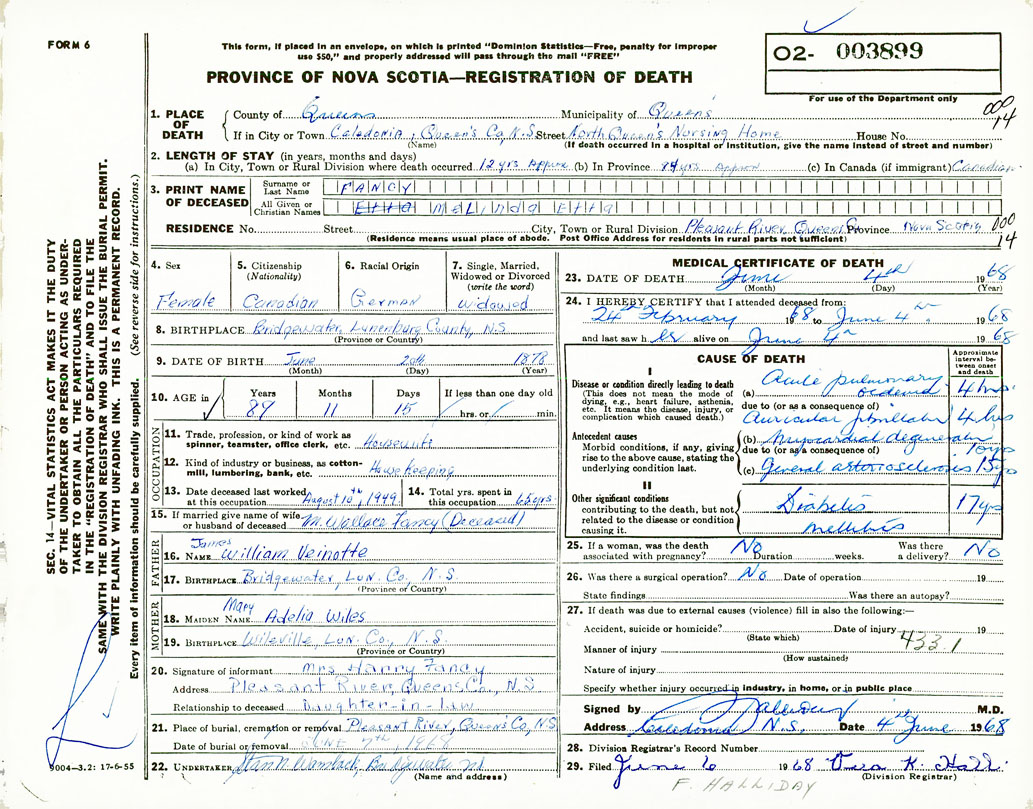 FORM 6
This form, if placed in an envelope, on which is printed "Dominion Statistics—Free, penalty for improper
use $50," and properly addressed will pass through the mail "FREE"
PROVINCE OF NOVA SCOTIA—REGISTRATION OF DEATH
O2- 003899
For use of the Department only
000
14
SEC. 14—VITAL STATISTICS ACT MAKES IT THE DUTY
OF THE UNDERTAKER OR PERSON ACTING AS UNDER-
TAKER TO OBTAIN ALL THE PARTICULARS REQUIRED
IN THE "REGISTRATION OF DEATH" AND TO FILE THE
SAME WITH THE DIVISION REGISTRAR WHO SHALL ISSUE THE BURIAL PERMIT.
WRITE PLAINLY WITH UNFADING INK. THIS IS A PERMANENT RECORD.
Every item of information should be carefully supplied. (See reverse side for instructions.)
1. PLACE OF DEATH
County of Queens Municipality of Queens
If in City or Town Caledonia, Queen's Co, N.S. Street North Queen's Nursing Home House No.
(Name) (If death occurred in a hospital or institution, give the name instead of street and number)
2. LENGTH OF STAY (in years, months and days)
(a) In City, Town or Rural Division where death occurred 12 yrs Approx (b) In Province 89 yrs Approx (c) In Canada (if immigrant) Canadian
3. PRINT NAME OF DECEASED
Surname or Last Name FANCY
All Given or Christian Names Etta Melinda Etta
RESIDENCE No. Street City, Town or Rural Division Pleasant River Queens Co Province Nova Scotia
000
14
(Residence means usual place of abode. Post Office Address for residents in rural parts not sufficient)
4. Sex
Female
5. Citizenship
(Nationality)
Canadian
6. Racial Origin
German
7. Single, Married,
Widowed or Divorced
(write the word)
Widowed
8. BIRTHPLACE Bridgewater, Lunenburg County, N.S.
(Province or Country)
9. DATE OF BIRTH June 20th 1878
(Month) (Day) (Year)
10. AGE in
Years Months Days If less than one day old
89 11 15 hrs. or min.
OCCUPATION
11. Trade, profession, or kind of work as
spinner, teamster, office clerk, etc. Housewife
12. Kind of industry or business, as cotton-
mill, lumbering, bank, etc. Housekeeping
13. Date deceased last worked
at this occupation August 10th, 1949
14. Total yrs. spent in
this occupation 65 yrs
15. If married give name of wife
or husband of deceased M. Wallace Fancy (Deceased)
FATHER
James
16. NAME William Veinotte
17. BIRTHPLACE Bridgewater, Lun. Co., N.S.
(Province or Country)
MOTHER
Mary
18. MAIDEN NAME Adelia Wiles
19. BIRTHPLACE Wileville, Lun. Co., N.S.
(Province or Country)
20. Signature of informant Mrs. Harry Fancy
Address Pleasant River, Queens Co., N.S.
Relationship to deceased Daughter-in-Law
21. Place of burial, cremation or removal Pleasant River, Queen's Co, N.S.
Date of burial or removal JUNE 7th, 1968
22. UNDERTAKER Bridgewater NS
(Name and address)
9004—3.2: 17-6-55
MEDICAL CERTIFICATE OF DEATH
23. DATE OF DEATH June 4th 1968
(Month) (Day) (Year)
24. I HEREBY CERTIFY that I attended deceased from:
24th February 1968 to June 4th 1968
and last saw her alive on June 4th 1968
CAUSE OF DEATH
Approximate
interval be-
tween onset
and death
I
Disease or condition directly leading to death
(This does not mean the mode of
dying, e.g., heart failure, asthenia,
etc. It means the disease, injury, or
complication which caused death.)
(a) Acute pulmonary oedema 4 hrs.
due to (or as a consequence of)
Auricular fibrillation 4 hrs
Antecedent causes
Morbid conditions, if any, giving
rise to the above cause, stating the
underlying condition last.
(b) Myocardial degeneration 10 yrs
due to (or as a consequence of)
(c) General arteriosclerosis 15 yrs
II
Other significant conditions
contributing to the death, but not
related to the disease or condition
causing it.
Diabetes 17 yrs
mellitus
25. If a woman, was the death
associated with pregnancy? No Duration weeks. Was there
a delivery? No
26. Was there a surgical operation? No Date of operation 19
State findings Was there an autopsy?
27. If death was due to external causes (violence) fill in also the following:—
Accident, suicide or homicide? Date of injury 19
(State which)
433.1
Manner of injury
(How sustained)
Nature of injury
Specify whether injury occurred in industry, in home, or in public place
Signed by Halliday M.D.
Address Caledonia N.S. Date 4th June 1968
28. Division Registrar's Record Number
29. Filed June 6 1968 Vera K. Hall
(Division Registrar)
F. HALLIDAY